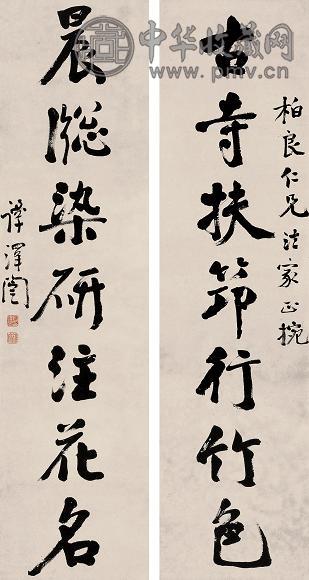 中华收藏网
www.pmv.cn
柏良仁兄法家正捥
古寺扶筇行竹色
晨牕染研注花名
譚澤闓